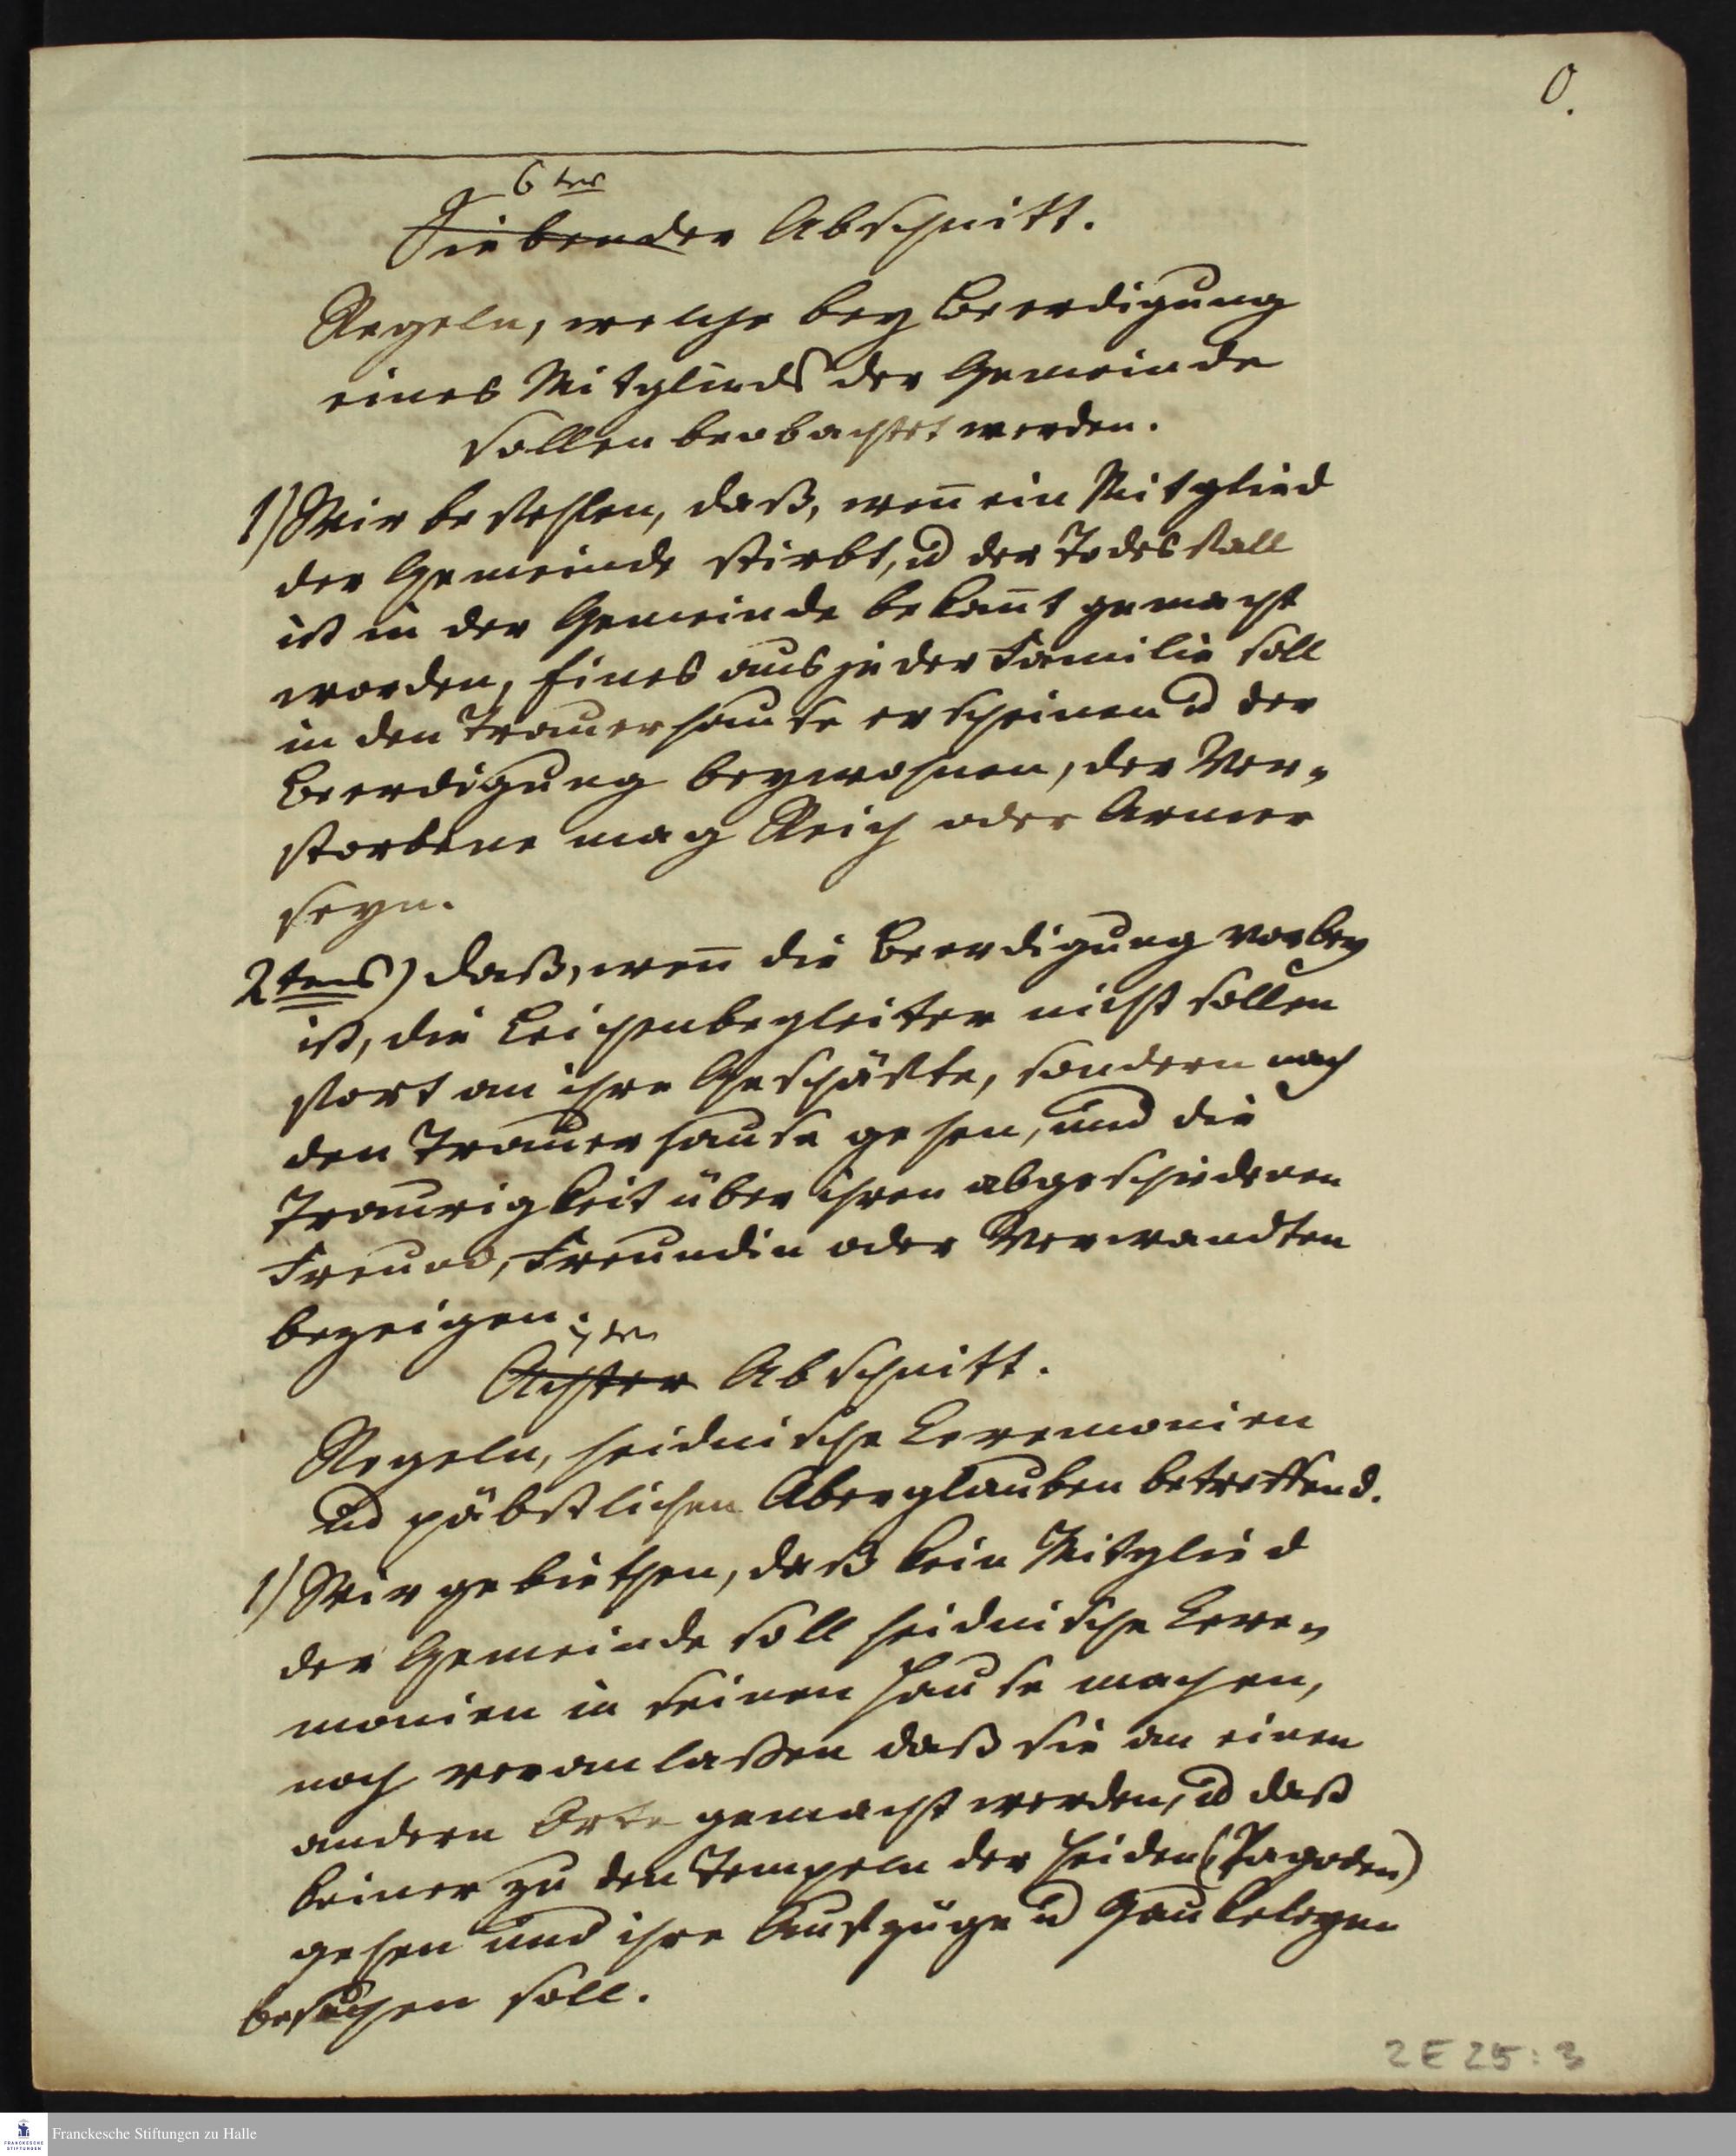 0.
6ter
Siebender Abschnitt.
Regeln, welche bey Beerdigung
eines Mitglieds der Gemeinde
sollen beobachtet werden.
1) Wir befehlen, daß, weñ ein Mitglied
der Gemeinde stirbt, ud der Todesfall
ist in der Gemeinde bekañt gemacht
worden, Eines aus jeder Familie soll
in den Trauerhause erscheinen ud der
Beerdigung beywohnen, der Ver-
storbene mag Reich oder Armer
seyn.
2tens) daß, weñ die Beerdigung vorbey
ist, die Leichenbegleiter nicht sollen
fort an ihre Geschäfte, sondern nach
den Trauerhause gehen, und die
Traurigkeit über ihren abgeschiedenen
Freund, Freundin oder Verwandten
bezeigen.
7ter
Achter Abschnitt.
Regeln, heidnische Ceremonien
ud päbstlichen Aberglauben betreffend.
1) Wir gebiethen, daß kein Mitglied
der Gemeinde soll heidnische Cere-
monien in seinen Hause machen,
noch veranlaßen daß sie an einen
andern Orte gemacht werden, ud daß
keiner zu den Tempeln der Heiden (Pagoden)
gehen und ihre Aufzüge ud Gaukeleyen
besuchen soll.
2 E 25 : 3
FRANCKESCHE
STIFTUNGEN
Franckesche Stiftungen zu Halle